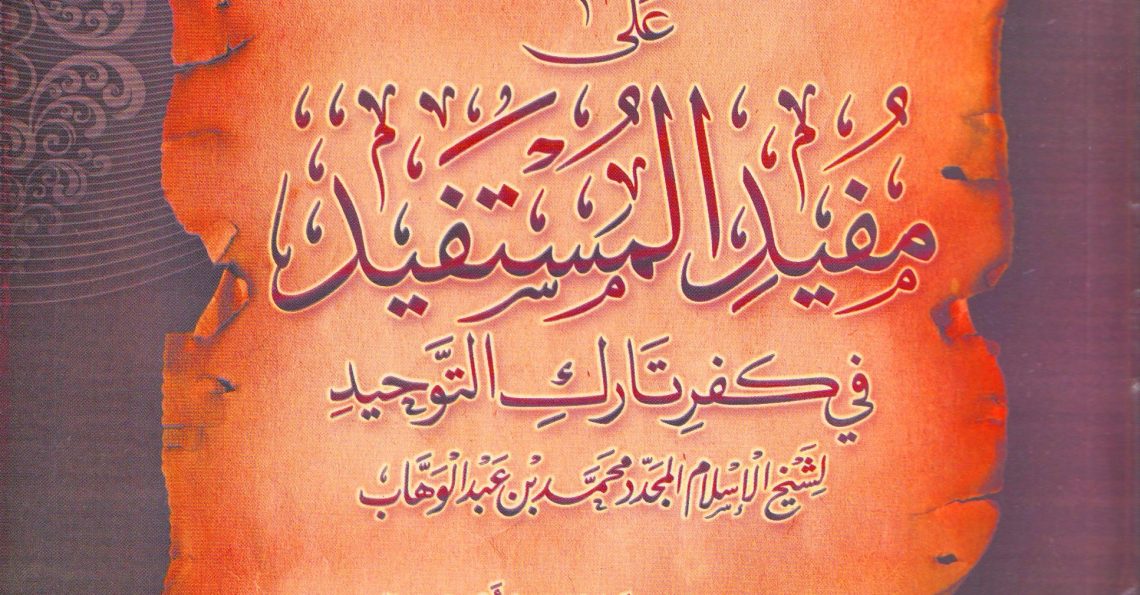 عَلَى
مُفِيدِ الْمُسْتَفِيدِ
فِي كُفْرِ تَارِكِ التَّوْحِيدِ
لِشَيْخِ الْإِسْلَامِ الْمُجَدِّدِ مُحَمَّدِ بْنِ عَبْدِ الْوَهَّابِ